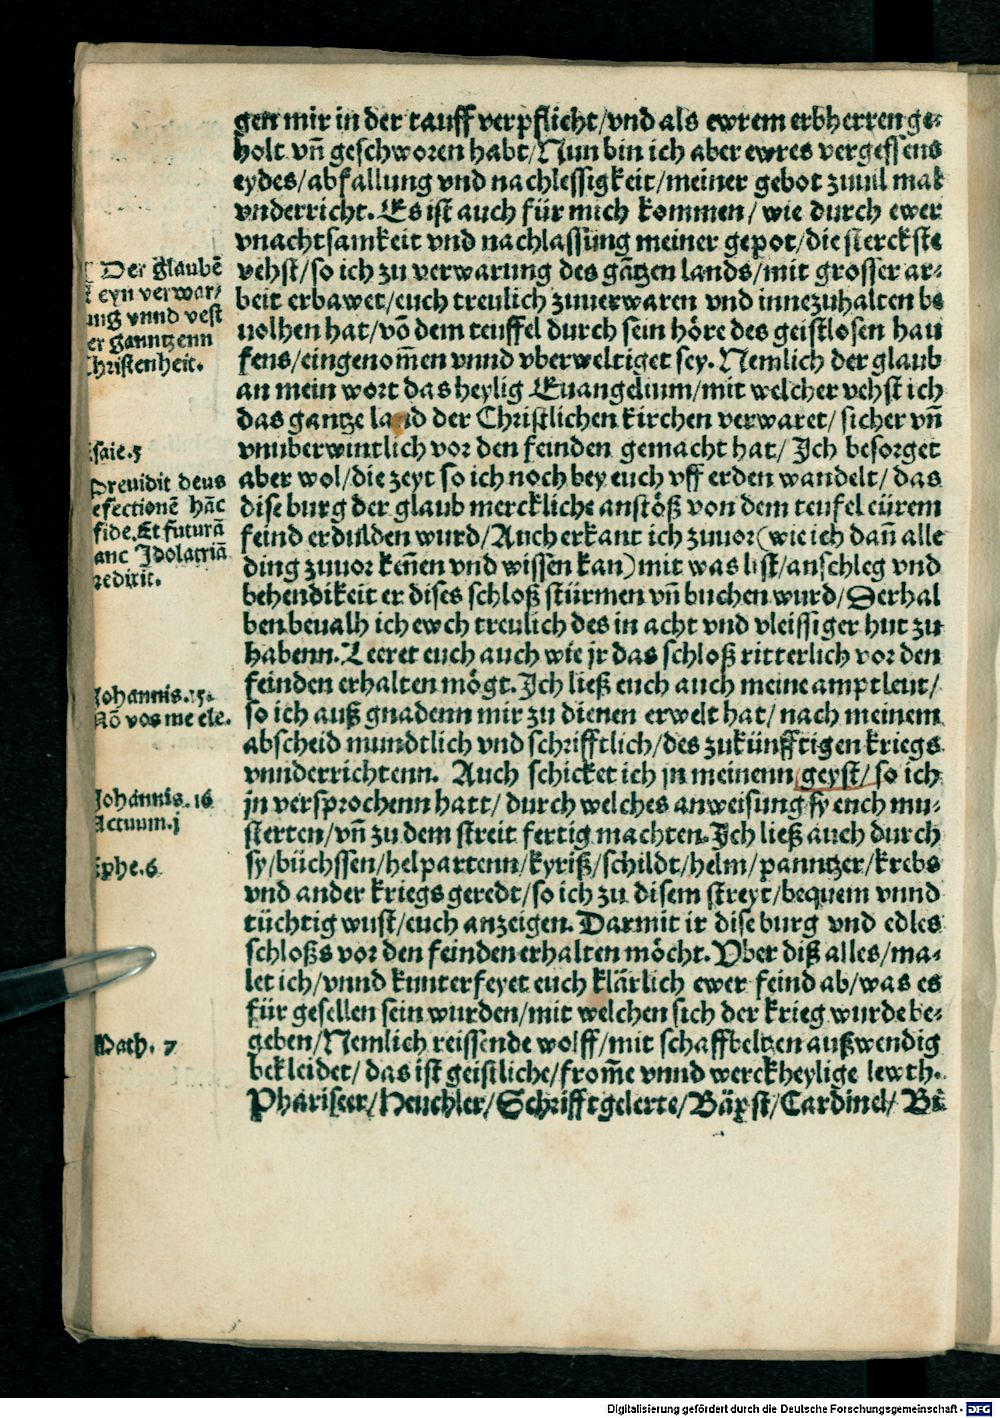 gen mir in der tauff verpflicht/vnd als ewrem erbherren ge⸗
holt vn̄ geschworen habt/Nun bin ich aber ewres vergessens
eydes/abfallung vnd nachlessigkeit/meiner gebot zuuil mal
vnderricht. Es ist auch für mich kommen/ wie durch ewer
vnachtsamkeit vnd nachlassung meiner gepot/die sterckste
vehst/so ich zu verwarung des gātzen lands/mit grosser ar⸗
beit erbawet/euch treulich zuuerwaren vnd innezuhalten be
uolhen hat/vō dem teuffel durch sein höre des geistlosen hau
fens/eingenom̄en vnnd vberweltiget sey. Nemlich der glaub
an mein wort das heylig Euangelium/mit welcher vehst ich
das gantze land der Christlichen kirchen verwaret/ sicher vn̄
vnuberwintlich vor den feinden gemacht hat/ Ich besorget
aber wol/die zeyt so ich noch bey euch vff erden wandelt/ das
dise burg der glaub merckliche anstöß von dem teufel eürem
feind erdulden wurd/Auch erkant ich zuuor(wie ich dan̄ alle
ding zuuor ken̄en vnd wissen kan)mit was list/anschleg vnd
behendikeit er dises schloß stürmen vn̄ buchen wurd/Derhal
ben beualh ich ewch treulich des in acht vnd vleissiger hut zu
habenn. Leeret euch auch wie jr das schloß ritterlich vor den
feinden erhalten mögt. Ich ließ euch auch meine amptleut/
so ich auß gnadenn mir zu dienen erwelt hat/ nach meinem
abscheid mundtlich vnd schrifftlich/des zukünfftigen kriegs
vnnderrichtenn. Auch schicket ich jn meinenn geyst/ so ich
jn versprochenn hatt/ durch welches anweisung sy euch mu⸗
sterten/vn̄ zu dem streit fertig machten. Ich ließ auch durch
sy/büchssen/helpartenn/kyriß/schildt/helm/panntzer/krebs
vnd ander kriegs geredt/so ich zu disem streyt/bequem vnnd
tüchtig wust/euch anzeigen. Darmit ir dise burg vnd edles
schloßs vor den feinden erhalten möcht. Vber diß alles/ma⸗
let ich/vnnd kunterfeyet euch klärlich ewer feind ab/was es
für gesellen sein wurden/mit welchen sich der krieg wurde be⸗
geben/Nemlich reissende wolff/mit schaffbeltzen außwendig
bekleidet/das ist geistliche/from̄e vnnd werckheylige lewth.
Phariseer/Heuchler/Schrifftgelerte/Bäpst/Cardinel/ Bi
Der glaubē
eyn verwar⸗
ung vnnd vest
er ganntzenn
Christenheit.
Esaie.5
Preuidit deus
efectionē hāc
fide.Et futurā
anc Idolatriā
redixit.
Johannis.15.
Nō vos me ele.
Johannis.16
Actuum.j
Ephe.6
Math. 7
Digitalisierung gefördert durch die Deutsche Forschungsgemeinschaft - DFG